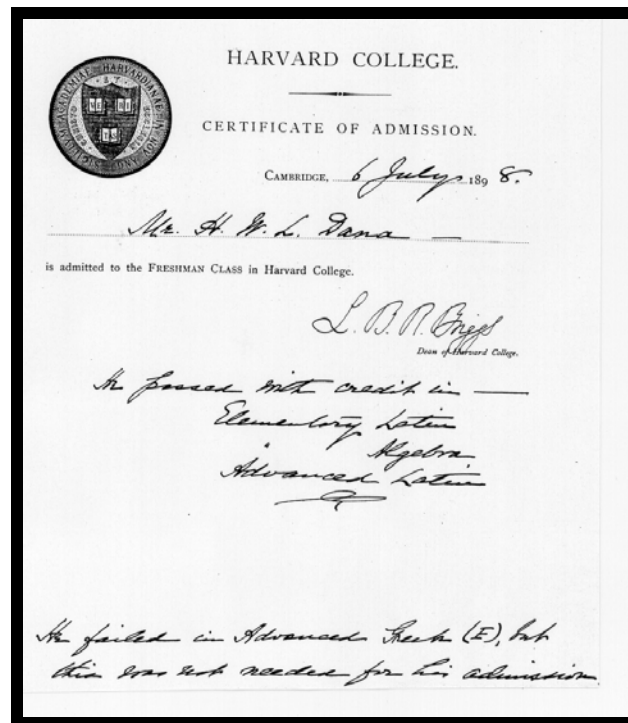 HARVARD COLLEGE.
CERTIFICATE OF ADMISSION.
CAMBRIDGE, 6 July 1898.
Mr. H. W. L. Dana —
is admitted to the FRESHMAN CLASS in Harvard College.
L. B. R. Briggs
Dean of Harvard College.
He passed with credit in —
Elementary Latin
" Algebra
Advanced Latin
He failed in Advanced Greek (E), but
this was not needed for his admission.